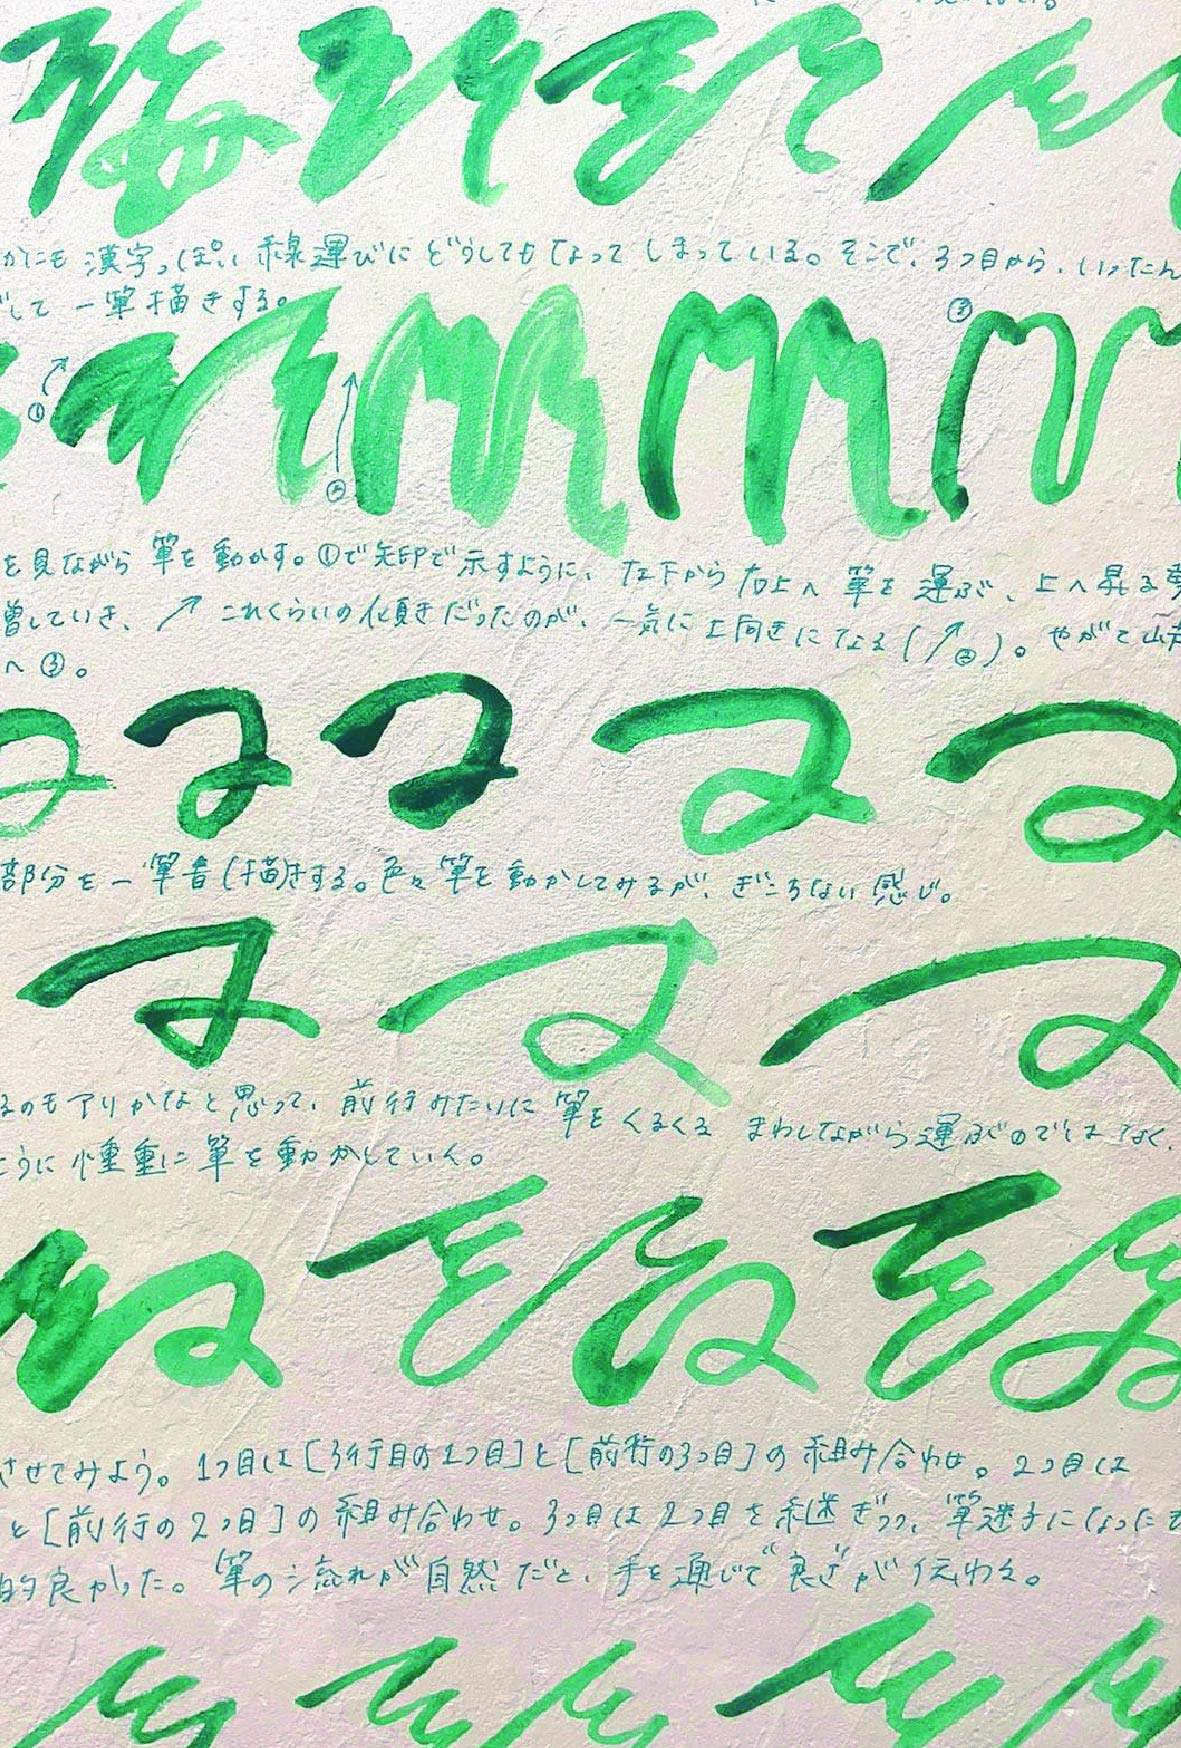 かにも漢字っぽい線運びにどうしてもなってしまっている。そこで、3つ目から、いったん
して一筆描きする。
③
①
②
を見ながら筆を動かす。①で矢印で示すように、左下から右上へ筆を運ぶ、上へ昇る
増していき、↗これくらいの傾きだったのが、一気に上向きになる(↗②)。やがて
へ③。
部分を一筆書(描)きする。色々筆を動かしてみるが、ぎこちない感じ。
るのもアリかなと思って、前行みたいに筆をくるくるまわしながら運ぶのではなく、
ように慎重に筆を動かしていく。
させてみよう。1つ目は[3行目の1つ目]と[前行の3つ目]の組み合わせ。2つ目は
と[前行の2つ目]の組み合わせ。3つ目は2つ目を継ぎつつ、筆が迷子になった
的良かった。筆の流れが自然だと、手を通じて良さが伝わる。